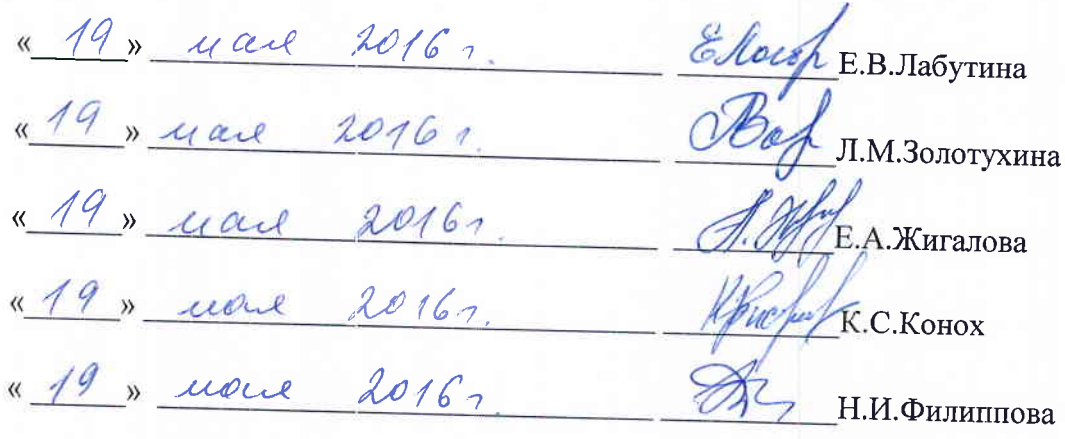 «19» мая 2016 г. Е.В.Лабутина
«19» мая 2016 г. Л.М.Золотухина
«19» мая 2016 г. Е.А.Жигалова
«19» мая 2016 г. К.С.Конох
«19» мая 2016 г. Н.И.Филиппова